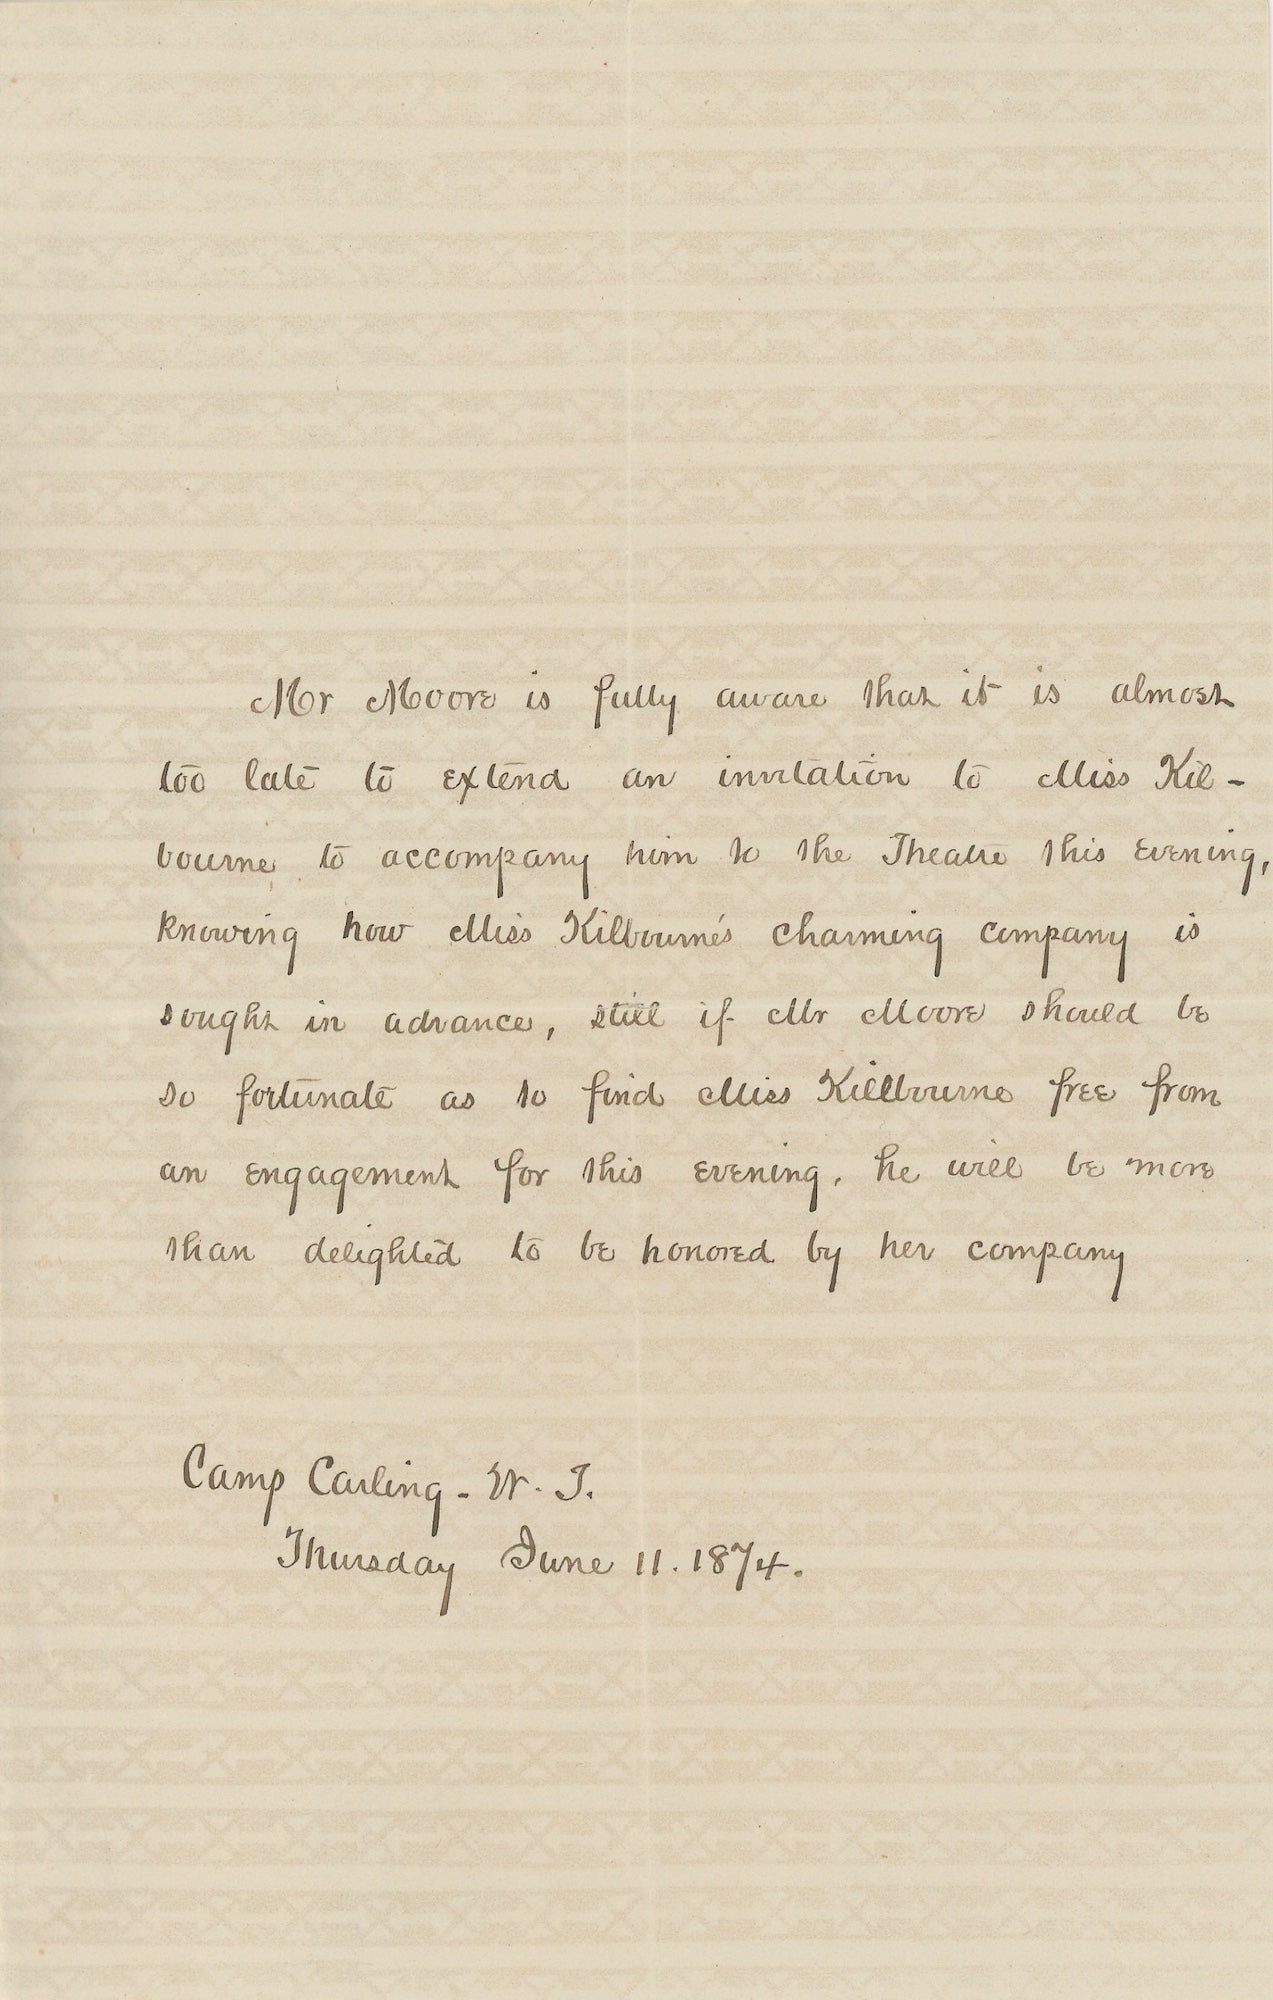 Mr Moore is fully aware that it is almost
too late to extend an invitation to Miss Kil-
bourne to accompany him to the Theatre this evening,
knowing how Miss Kilbourne's charming company is
sought in advance, still if Mr Moore should be
so fortunate as to find Miss Killbourne free from
an engagement for this evening, he will be more
than delighted to be honored by her company
Camp Carling - W. T.
Thursday June 11. 1874.